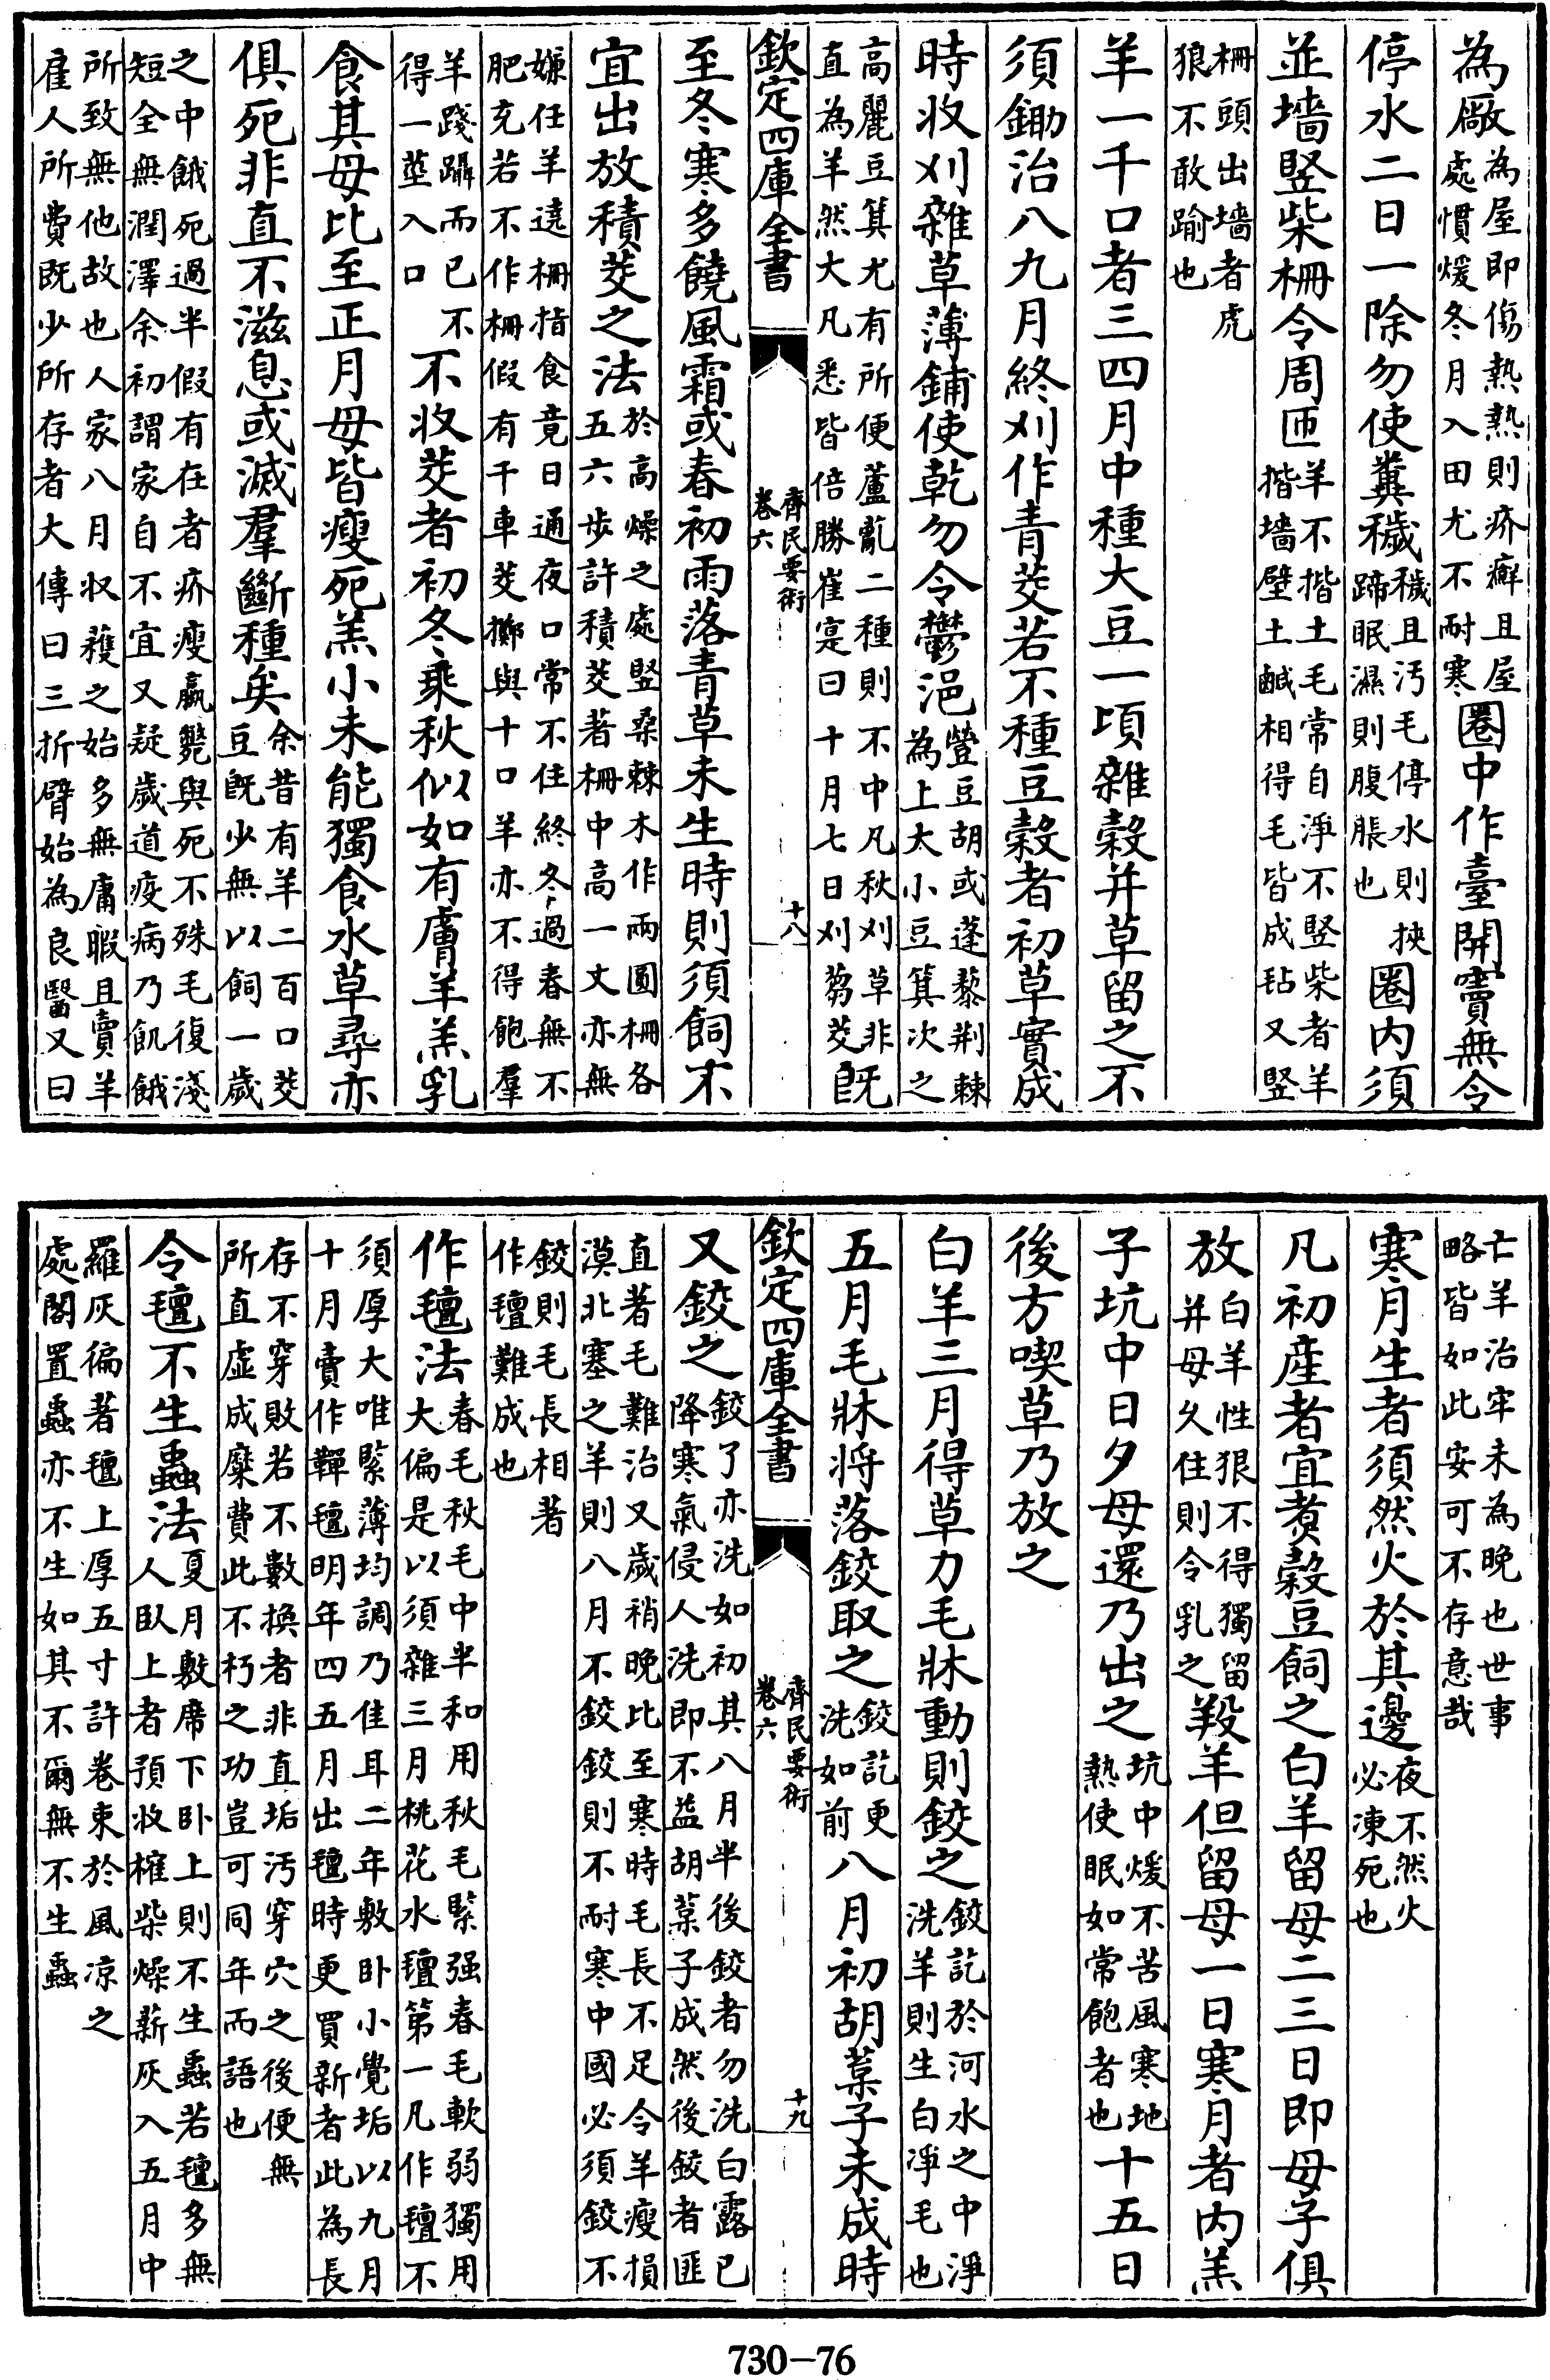 為厰為屋即傷熱熱則疥癬且屋處慣煖冬月入田尤不耐寒圈中作臺開竇無令
停水二日一除勿使糞穢穢且汚毛停水則挾蹄眠濕則腹脹也圈内須
並墻竪柴柵令周匝羊不揩土毛常自淨不竪柴者羊揩墻壁土鹹相得毛皆成毡又竪
柵頭出墻者虎狼不敢踰也
羊一千口者三四月中種大豆一頃雜穀并草留之不
須鋤治八九月終刈作青茭若不種豆穀者初草實成
時收刈雜草薄鋪使乾勿令鬱浥䝁豆胡或蓬藜荆棘為上大小豆箕次之
高麗豆箕尤有所便蘆亂二種則不中凡秋刈草非直為羊然大凡悉皆倍勝崔寔曰十月七日刈芻茭既
欽定四庫全書
齊民要術
卷六
十八
至冬寒多饒風霜或春初雨落青草未生時則須飼不
宜出放積茭之法於高燥之處竪桑棘木作兩圓柵各五六步許積茭著柵中高一丈亦無
嫌任羊遶柵指食竟日通夜口常不住終冬過春無不肥充若不作柵假有千車茭擲與十口羊亦不得飽羣
羊踐躡而已不得一莖入口不收茭者初冬乘秋似如有膚羊羔乳
食其母比至正月母皆瘦死羔小未能獨食水草尋亦
俱死非直不滋息或滅羣斷種矣余昔有羊二百口茭豆既少無以飼一歲
之中餓死過半假有在者疥瘦羸斃與死不殊毛復淺短全無潤澤余初謂家自不宜又疑歲道疫病乃飢餓
所致無他故也人家八月收穫之始多無庸暇且賣羊雇人所費既少所存者大傳曰三折臂始為良醫又曰
亡羊治牢未為晚也世事略皆如此安可不存意哉
寒月生者須然火於其邊夜不然火必凍死也
凡初産者宜煑穀豆飼之白羊留母二三日即母子俱
放白羊性狠不得獨留并母久住則令乳之羖羊但留母一日寒月者内羔
子坑中日夕母還乃出之坑中煖不苦風寒地熱使眠如常飽者也十五日
後方喫草乃放之
白羊三月得草力毛牀動則鉸之鉸訖於河水之中淨洗羊則生白淨毛也
五月毛牀將落鉸取之鉸訖更洗如前八月初胡葈子未成時
欽定四庫全書
齊民要術
卷六
十九
又鉸之鉸了亦洗如初其八月半後鉸者勿洗白露已降寒氣侵人洗即不益胡葈子成然後鉸者匪
直著毛難治又歲稍晚比至寒時毛長不足令羊瘦損漠北塞之羊則八月不鉸鉸則不耐寒中國必須鉸不
鉸則毛長相著作氊難成也
作氊法春毛秋毛中半和用秋毛緊强春毛軟弱獨用大偏是以須雜三月桃花水氊第一凡作氊不
須厚大唯緊薄均調乃佳耳二年敷卧小覺垢以九月十月賣作鞾氊明年四五月出氊時更買新者此為長
存不穿敗若不數換者非直垢汚穿穴之後便無所直虚成糜費此不朽之功豈可同年而語也
令氊不生蟲法夏月敷席下卧上則不生蟲若氊多無人臥上者預收柞柴燥薪灰入五月中
羅灰徧著氊上厚五寸許卷束於風凉之處閣置蟲亦不生如其不爾無不生蟲
730-76